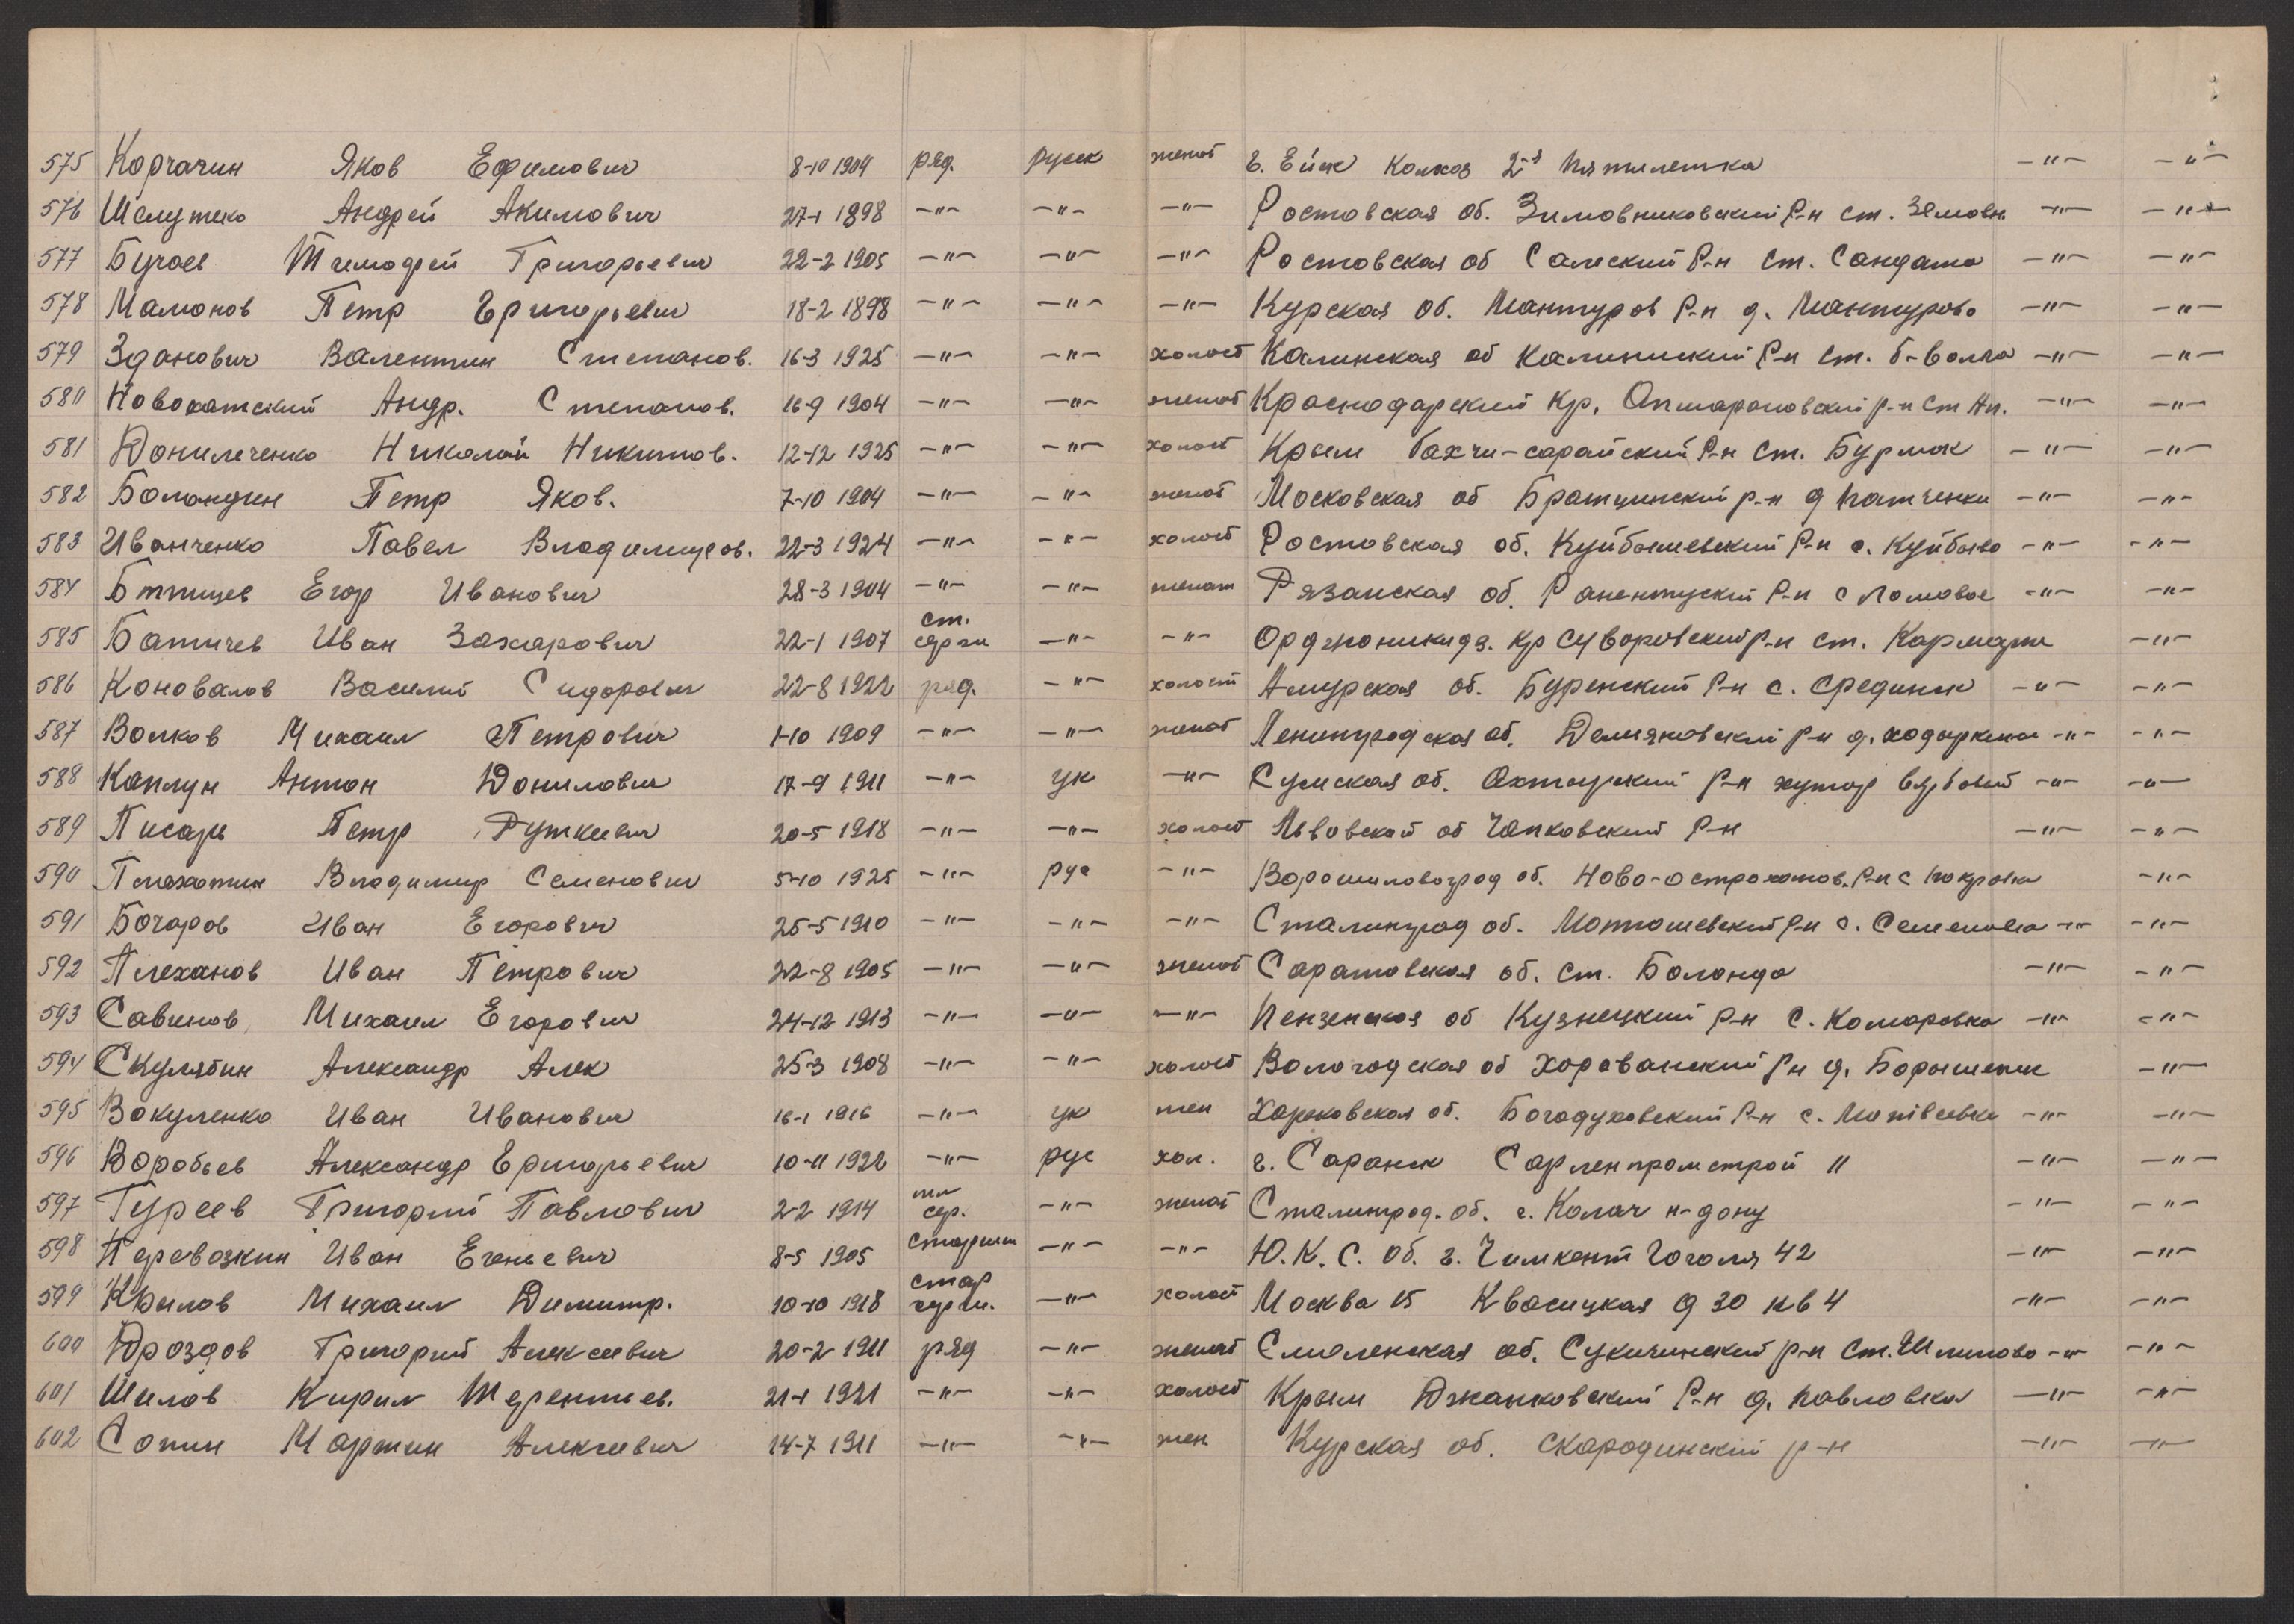 575 Корчагин Яков Ефимович 8-10 1904 ряд. русск женат г. Ейск Колхоз 2-я пятилетка -"- -"-
576 Шелутько Андрей Акимович 27-1 1898 -"- -"- -"- Ростовская об. Зимовниковский Р-н ст. Зимовн. -"- -"-
577 Бугаев Тимофей Григорьевич 22-2 1905 -"- -"- -"- Ростовская об Сальский Р-н ст. Сандата -"- -"-
578 Мамонов Петр Григорьевич 18-2 1898 -"- -"- -"- Курская об. Мантуров Р-н д. Мантурово -"- -"-
579 Зданович Валентин Степанов. 16-3 1925 -"- -"- холост Калинская об Калининский Р-н ст. б-Волга -"- -"-
580 Новохатский Андр. Степанов. 16-9 1904 -"- -"- женат Краснодарский Кр. Апшароновский р-н ст Ап. -"- -"-
581 Данильченко Николай Никитов. 12-12 1925 -"- -"- холост Крым бахчи-сарайский Р-н ст. Бурлюк -"- -"-
582 Баландин Петр Яков. 7-10 1904 -"- -"- женат Московская об р-н д -"- -"-
583 Иванченко Павел Владимиров. 22-3 1924 -"- -"- холост Ростовская об. Куйбышевский Р-н с. Куйбыво -"- -"-
584 Егор Иванович 28-3 1904 -"- -"- женат Рязанская об. Раненпуский Р-н с Ломовое -"- -"-
585 Батичев Иван Захарович 22-1 1907 ст. сержи -"- -"- Орджоникидз. кр Суворовский р-н ст. -"-
586 Коновалов Василий Сидорович 22-8 1922 ряд. -"- холост Амурская об. Буренский Р-н с. Срединск -"- -"-
587 Волков Михаил Петрович 1-10 1909 -"- -"- женат Ленинградская об. Демяновский р-н д. -"- -"-
588 Каплун Антон Данилович 17-9 1911 -"- ук -"- Сумская об. Ахтырский Р-н хутор вербовый -"- -"-
589 Писарь Петр 20-5 1918 -"- -"- холост Львовской об Р-н -"- -"-
590 Плахотин Владимир Семенович 5-10 1925 -"- рус -"- Ворошиловоград об. Ново-острохатов. Р-н с покровка -"-
591 Бочаров Иван Егорович 25-5 1910 -"- -"- -"- Сталинград об. Р-н с. Семеновка -"- -"-
592 Плеханов Иван Петрович 22-8 1905 -"- -"- женат Саратовская об. ст. Баланда -"- -"-
593 Савинов Михаил Егорович 24-12 1913 -"- -"- -"- Пензенская об Кузнецкий р-н с. Комаровка -"- -"-
594 Скулябин Александр Алек 25-3 1908 -"- -"- холост Вологодская об р-н д. -"-
595 Вакуленко Иван Иванович 16-1 1916 -"- ук жен Харьковская об. Богодуховский Р-н с. Матвеевка -"- -"-
596 Воробьев Александр Григорьевич 10-11 1922 -"- рус хол. г. Саранск Сарленпромстрой 11 -"- -"-
597 Гуреев Григорий Павлович 2-2 1914 мл сер. -"- женат Сталинград. об. г. Калач н-дону -"- -"-
598 Перевозкин Иван Егеньевич 8-5 1905 старшин -"- -"- Ю.К.С. об. г. Чимкент Гоголя 42 -"- -"-
599 Крылов Михаил Димитр. 10-10 1918 стар -"- холост Москва 15 д 30 кв 4 -"- -"-
600 Дроздов Григорий Алексеевич 20-2 1911 ряд -"- женат Смоленская об. Сухичинский р-н ст. Шлипово -"- -"-
601 Шилов Кирил Терентьев. 21-1 1921 -"- -"- холост Крым Джанковский Р-н д. павловка -"- -"-
602 Сопин Мартин Алексеевич 14-7 1911 -"- -"- жен Курская об. скородинский р-н -"- -"-